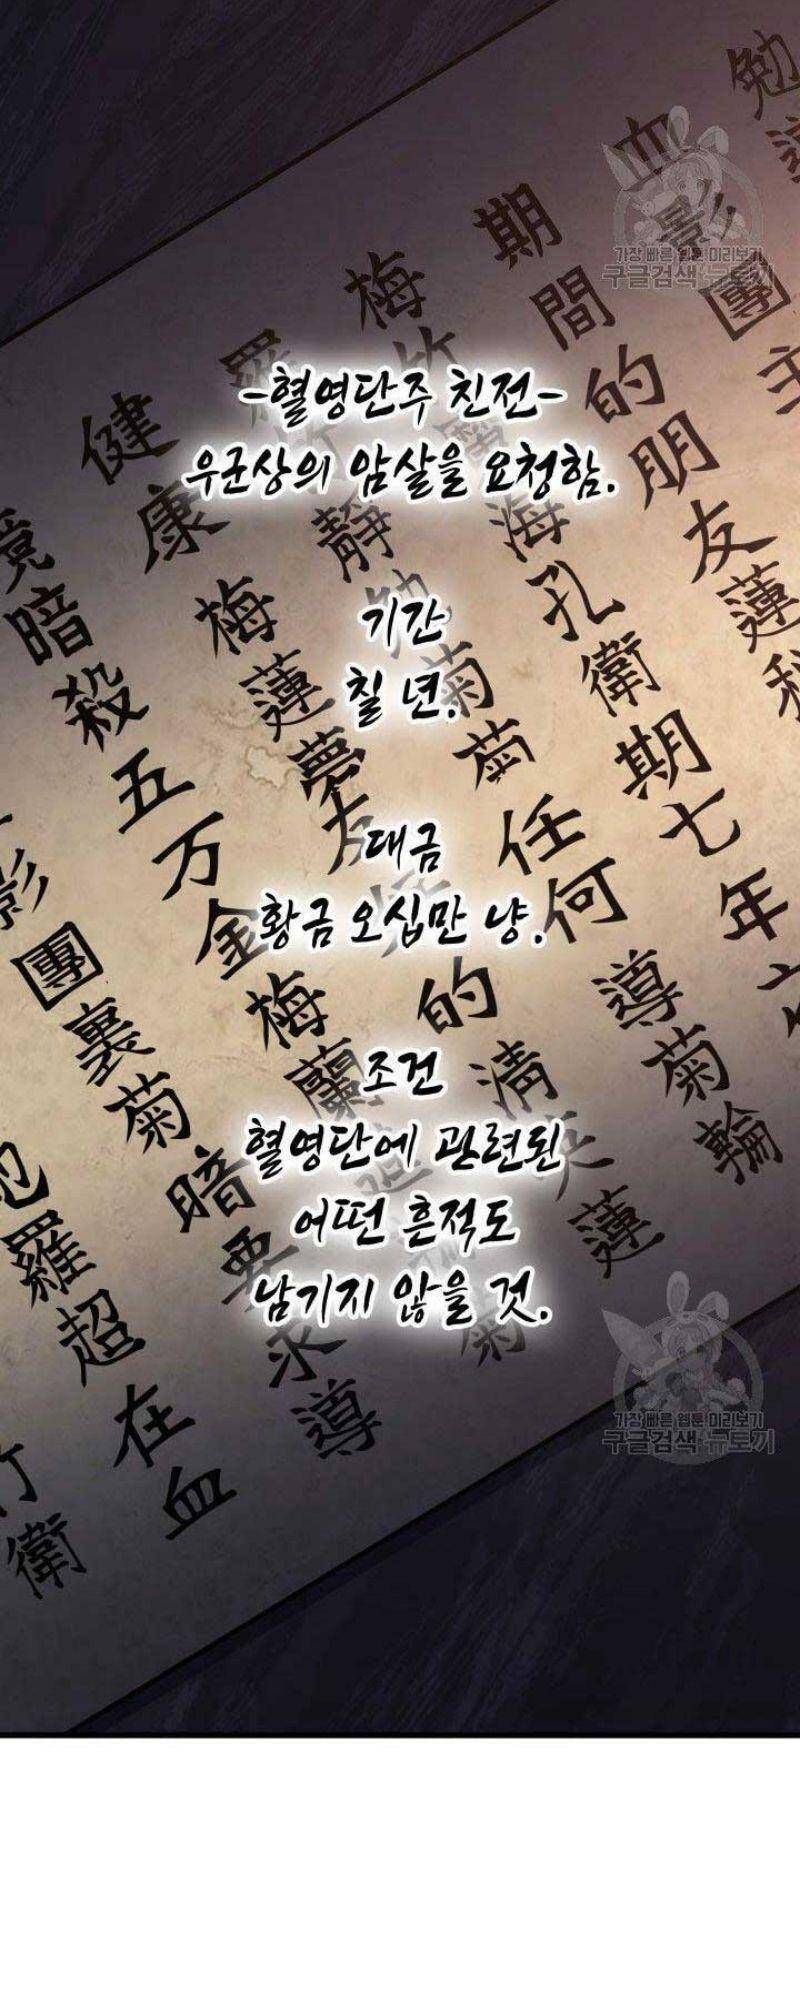 -혈영단주 친전-
우군상의 암살을 요청함.
기간
칠 년.
대금
황금 오십만 냥.
조건
혈영단에 관련된
어떤 흔적도
남기지 않을 것.
勉
血影團主
期間的朋友蓮
梅竹
海孔衛期七年
羅
靜勉菊菊任何導菊輪
健康梅蓮夢
的清英蓮
暗殺五万金梅蘭
菊
影團裏菊暗要求導
羅超在血
衛
가장 빠른 웹툰 미리보기
구글검색 뉴토끼
가장 빠른 웹툰 미리보기
구글검색 뉴토끼